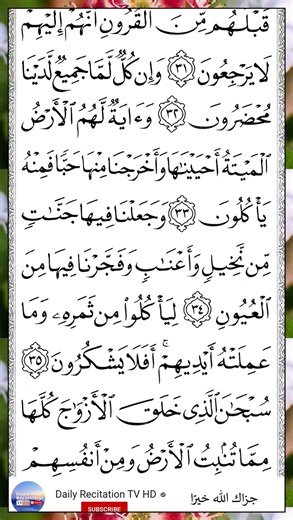 قَبْلَهُم مِّنَ ٱلْقُرُونِ أَنَّهُمْ إِلَيْهِمْ
لَا يَرْجِعُونَ ٣١ وَإِن كُلٌّ لَّمَّا جَمِيعٌ لَّدَيْنَا
مُحْضَرُونَ ٣٢ وَءَايَةٌ لَّهُمُ ٱلْأَرْضُ
ٱلْمَيْتَةُ أَحْيَيْنَٰهَا وَأَخْرَجْنَا مِنْهَا حَبًّا فَمِنْهُ
يَأْكُلُونَ ٣٣ وَجَعَلْنَا فِيهَا جَنَّٰتٍ
مِّن نَّخِيلٍ وَأَعْنَٰبٍ وَفَجَّرْنَا فِيهَا مِنَ
ٱلْعُيُونِ ٣٤ لِيَأْكُلُوا۟ مِن ثَمَرِهِۦ وَمَا
عَمِلَتْهُ أَيْدِيهِمْ ۖ أَفَلَا يَشْكُرُونَ ٣٥
سُبْحَٰنَ ٱلَّذِى خَلَقَ ٱلْأَزْوَٰجَ كُلَّهَا
مِمَّا تُنۢبِتُ ٱلْأَرْضُ وَمِنْ أَنفُسِهِمْ
Daily Recitation TV HD
SUBSCRIBE
جزاك الله خيرًا